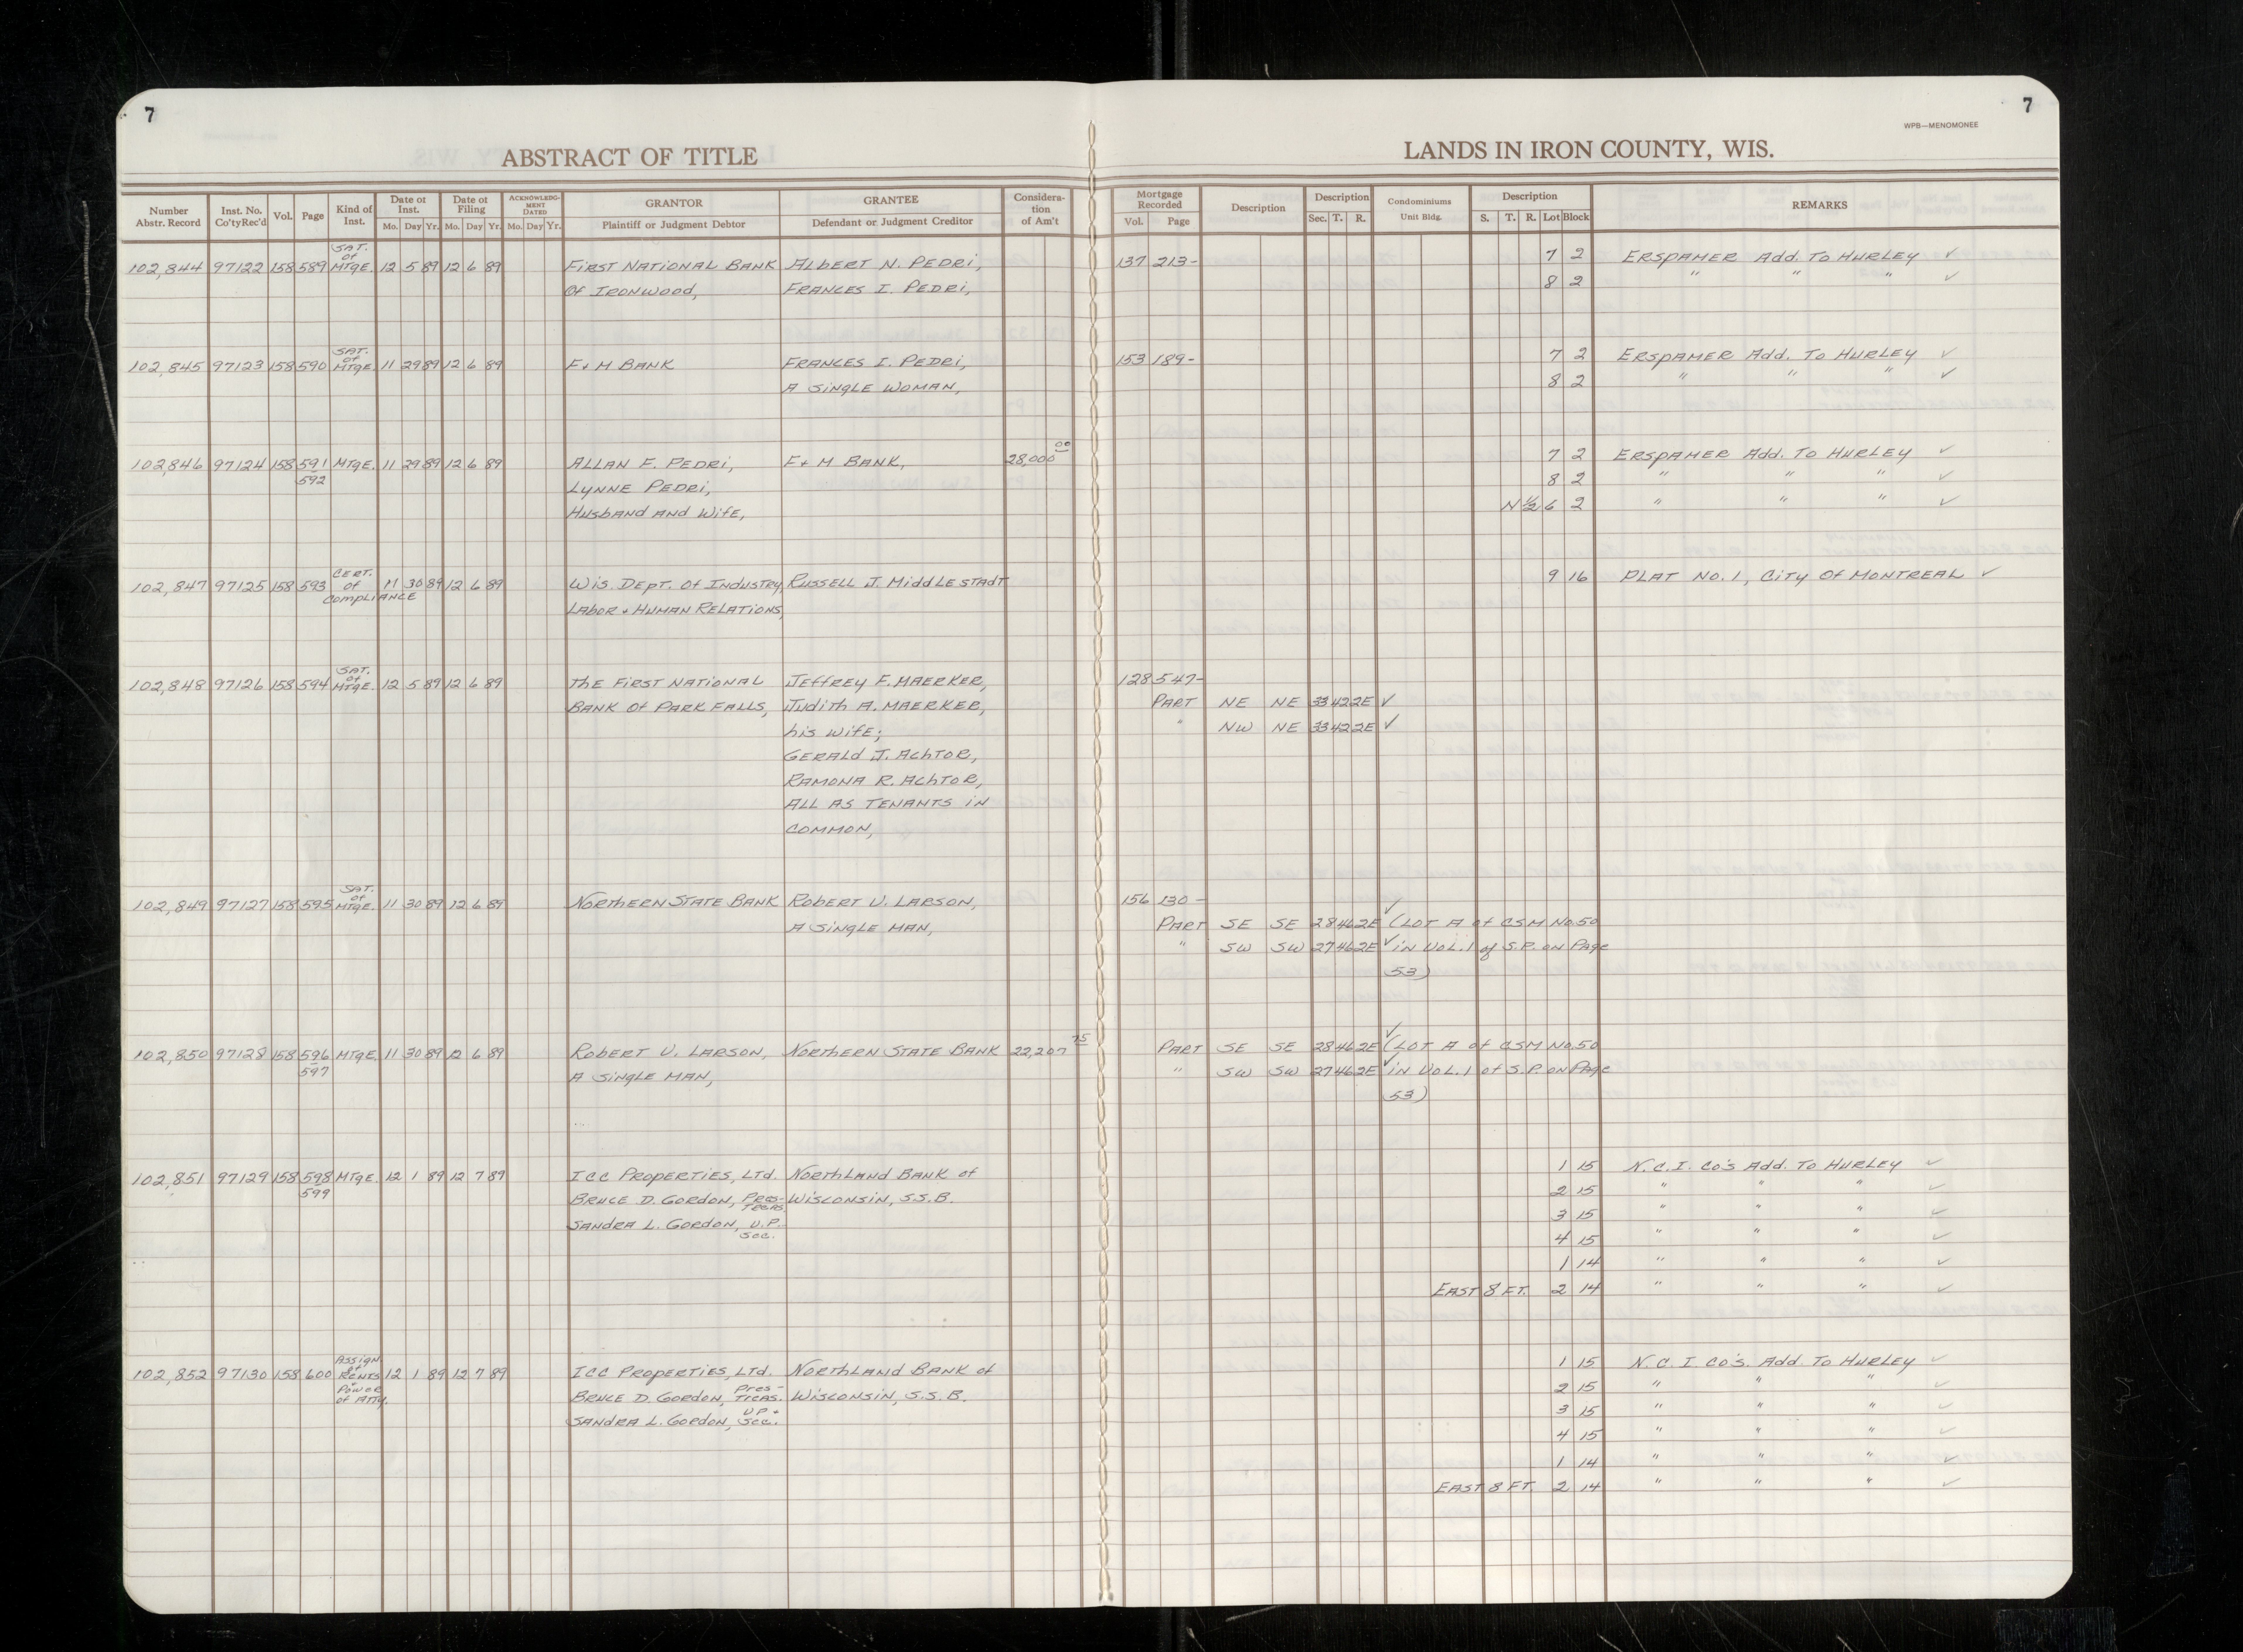 7
7
WPB—MENOMONEE
ABSTRACT OF TITLE
LANDS IN IRON COUNTY, WIS.
Number Abstr. Record | Inst. No. Co'ty Rec'd | Vol. | Page | Kind of Inst. | Date of Inst. Mo. Day Yr. | Date of Filing Mo. Day Yr. | ACKNOWLEDGMENT DATED Mo. Day Yr. | GRANTOR Plaintiff or Judgment Debtor | GRANTEE Defendant or Judgment Creditor | Consideration of Am't | Mortgage Recorded Vol. Page | Description | Description Sec. T. R. | Condominiums Unit Bldg. | Description S. T. R. Lot Block | REMARKS
102,844 97122 158 589 SAT. of MTGE. 12 5 89 12 6 89 FIRST NATIONAL BANK ALBERT N. PEDRI, 137 213- 7 2 ERSPAMER Add. TO HURLEY ✓
OF IRONWOOD, FRANCES I. PEDRI, 8 2 " " " ✓
102,845 97123 158 590 SAT. of MTGE. 11 29 89 12 6 89 F+M BANK FRANCES I. PEDRI, 153 189- 7 2 ERSPAMER Add. TO HURLEY ✓
A SINGLE WOMAN, 8 2 " " " ✓
102,846 97124 158 591 MTGE. 11 29 89 12 6 89 ALLAN F. PEDRI, F+M BANK, 28,000 00 7 2 ERSPAMER Add. TO HURLEY ✓
592 LYNNE PEDRI, 8 2 " " " ✓
HUSBAND AND WIFE, N 1/2 6 2 " " " ✓
102,847 97125 158 593 CERT. of COMPLIANCE 11 30 89 12 6 89 WIS. DEPT. OF INDUSTRY, RUSSELL J. MIDDLESTADT 9 16 PLAT NO. 1, CITY OF MONTREAL ✓
LABOR + HUMAN RELATIONS,
102,848 97126 158 594 SAT. of MTGE. 12 5 89 12 6 89 THE FIRST NATIONAL JEFFREY F. MAERKER, 128 547-
BANK OF PARK FALLS, JUDITH A. MAERKER, PART NE NE 33 42 2E ✓
his wife; " NW NE 33 42 2E ✓
GERALD J. ACHTOR,
RAMONA R. ACHTOR,
ALL AS TENANTS IN
COMMON,
102,849 97127 158 595 SAT. of MTGE. 11 30 89 12 6 89 NORTHERN STATE BANK ROBERT V. LARSON, 156 130- ✓
A SINGLE MAN, PART SE SE 28 46 2E (LOT A of CSM No. 50
" SW SW 27 46 2E ✓ in VOL. 1 of S.P. ON Page
53)
102,850 97128 158 596 MTGE. 11 30 89 12 6 89 ROBERT V. LARSON, NORTHERN STATE BANK 22,207 75 PART SE SE 28 46 2E ✓ (LOT A of CSM No. 50
597 A SINGLE MAN, " SW SW 27 46 2E ✓ in VOL. 1 of S.P. ON Page
53)
102,851 97129 158 598 MTGE. 12 1 89 12 7 89 ICC PROPERTIES, LTD. NORTHLAND BANK of 1 15 N.C.I. CO'S Add. TO HURLEY ✓
599 BRUCE D. GORDON, PRES-TREAS WISCONSIN, S.S.B. 2 15 " " " ✓
SANDRA L. GORDON, V.P. SEC. 3 15 " " " ✓
4 15 " " " ✓
1 14 " " " ✓
EAST 8 FT. 2 14 " " " ✓
102,852 97130 158 600 ASSIGN. of RENTS + POWER of ATTY. 12 1 89 12 7 89 ICC PROPERTIES, LTD. NORTHLAND BANK of 1 15 N.C.I. CO'S. Add. TO HURLEY ✓
BRUCE D. GORDON, PRES-TREAS. WISCONSIN, S.S.B. 2 15 " " " ✓
SANDRA L. GORDON, V.P. + SEC. 3 15 " " " ✓
4 15 " " " ✓
1 14 " " " ✓
EAST 8 FT. 2 14 " " " ✓